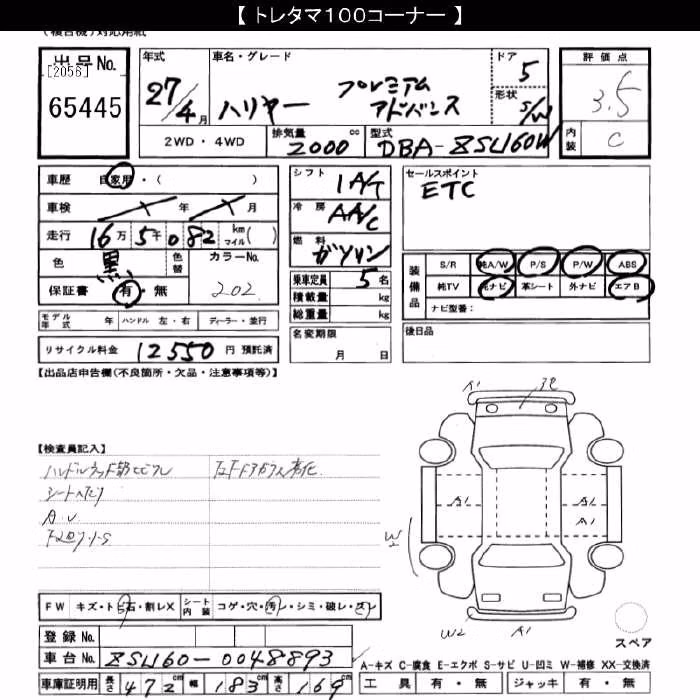 【 トレタマ100コーナー 】
出品No.
[2056]
65445
年式 車名・グレード ドア
27/4月 ハリヤー プレミアム アドバンス 5
形状 S/W
評価点
3.5
内装 C
2WD・4WD 排気量 2000 cc 型式 DBA-ZSU60W
車歴 自家用・( )
車検 年 月
走行 16万 5千 0 82 km マイル( )
色 黒 色替 カラーNo. 202
保証書 有・無
シフト IA/T
冷房 AA/C
燃料 ガソリン
乗車定員 5名
積載量 kg
総重量 kg
セールスポイント
ETC
装備品 S/R 純A/W P/S P/W ABS
純TV 純ナビ 革シート 外ナビ エアB
ナビ型番:
モデル年式 年 ハンドル 左・右 ディーラー・並行
名変期限 月 日
後日品
リサイクル料金 12550 円 預託済
【出品店申告欄(不良箇所・欠品・注意事項等)】
【検査員記入】
A1
A1
A1
A1
W2
W2
A1
FW キズ・トビ石・割レX シート内装 コゲ・穴・汚レ・シミ・破レ・スレ
登録No.
車台No. ZSU60-0048893
スペア
A-キズ C-腐食 E-エクボ S-サビ U-凹ミ W-補修 XX-交換済
車庫証明用 長さ 472cm 幅 183cm 高さ 169cm
工具 有・無 ジャッキ 有・無